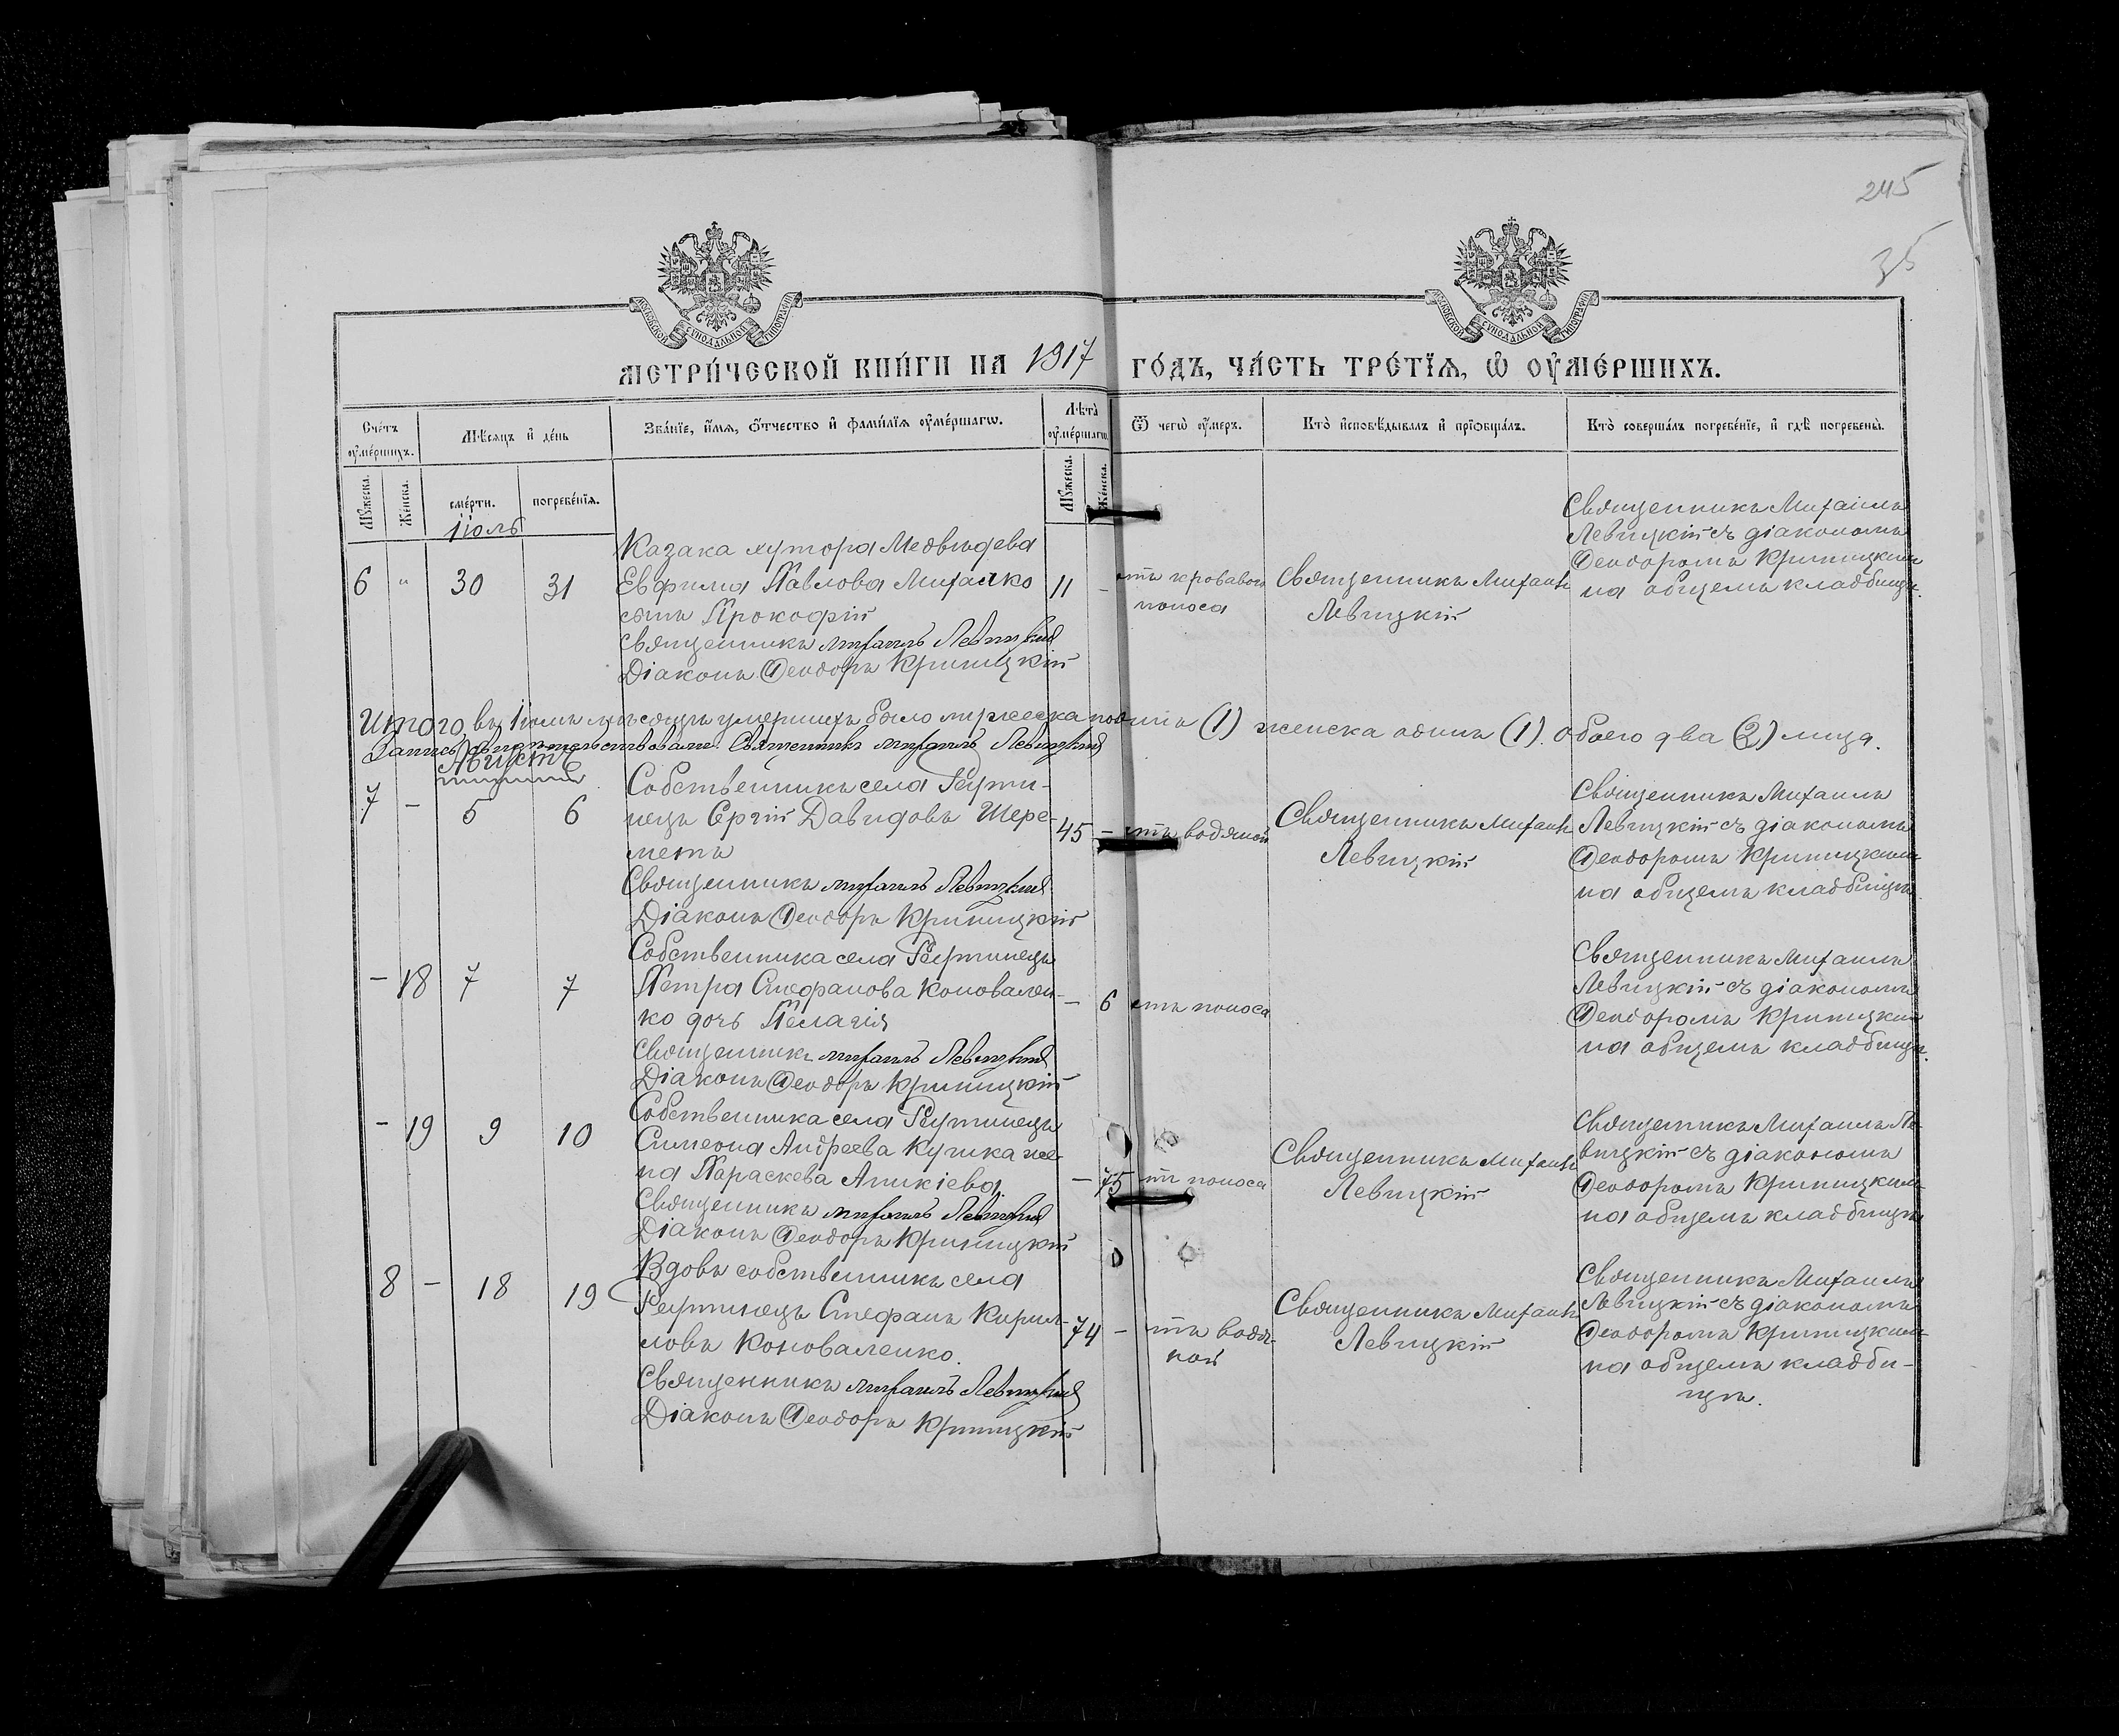 245
35
МОСКОВСКОЙ СѴНОДАЛЬНОЙ ТИПОГРАФІИ
МОСКОВСКОЙ СѴНОДАЛЬНОЙ ТИПОГРАФІИ
МЕТРИ́ЧЕСКОЙ КНИ́ГИ НА 1917 ГО́ДЪ, ЧА́СТЬ ТРЕ́ТІѦ, Ѡ ОУМЕ́РШИХЪ.
Счетъ оумершихъ.
Мѣсяцъ и день
Званіе, имя, отчество и фамилія оумершагѡ.
Лѣта оумершагѡ.
Ѿ чегѡ оумеръ.
Кто исповѣдывалъ и пріобщалъ.
Кто совершалъ погребеніе, и гдѣ погребены.
Мужеска.
Женска.
смерти.
погребенія.
Мужеска.
Женска.
Іюль
6 " 30 31
Казака хутора Медвѣдева
Евфима Павлова Михалко
сынъ Прокофій
Священникъ Михаилъ Левицкій
Діаконъ Ѳеодоръ Криницкій
11 -
отъ кроваваго
поноса
Священникъ Михаилъ
Левицкій
Священникъ Михаилъ
Левицкій съ діакономъ
Ѳеодоромъ Криницкимъ
на общемъ кладбищѣ.
Итого въ Іюлѣ мѣсяцѣ умершихъ было мужеска пола одинъ (1) женска одна (1). Обоего два (2) лица.
Запись свидѣтельствовали: Священникъ Михаилъ Левицкій
Августъ
7 - 5 6
Собственникъ села Реути-
нецъ Сергій Давидовъ Шере-
метъ
Священникъ Михаилъ Левицкій
Діаконъ Ѳеодоръ Криницкій
45 -
отъ водяной
Священникъ Михаилъ
Левицкій
Священникъ Михаилъ
Левицкій съ діакономъ
Ѳеодоромъ Криницкимъ
на общемъ кладбищѣ.
- 18 7 7
Собственника села Реутинецъ
Петра Стефанова Коновален-
ко дочь Пелагія
Священникъ Михаилъ Левицкій
Діаконъ Ѳеодоръ Криницкій
- 6
отъ поноса
Священникъ Михаилъ
Левицкій съ діакономъ
Ѳеодоромъ Криницким
на общемъ кладбищѣ.
- 19 9 10
Собственника села Реутинецъ
Симеона Андреева Кушка же-
на Параскева Аникіева
Священникъ Михаилъ Левицкій
Діаконъ Ѳеодоръ Криницкій
- 75
отъ поноса
Священникъ Михаилъ
Левицкій
Священникъ Михаилъ Ле-
вицкій съ діакономъ
Ѳеодоромъ Криницкимъ
на общемъ кладбищѣ
8 - 18 19
Вдовъ собственникъ села
Реутинецъ Стефанъ Кирил-
ловъ Коноваленко.
Священникъ Михаилъ Левицкій
Діаконъ Ѳеодоръ Криницкій
74 -
отъ водя-
ной
Священникъ Михаилъ
Левицкій
Священникъ Михаилъ
Левицкій съ діакономъ
Ѳеодоромъ Криницкимъ
на общемъ кладби-
щѣ.